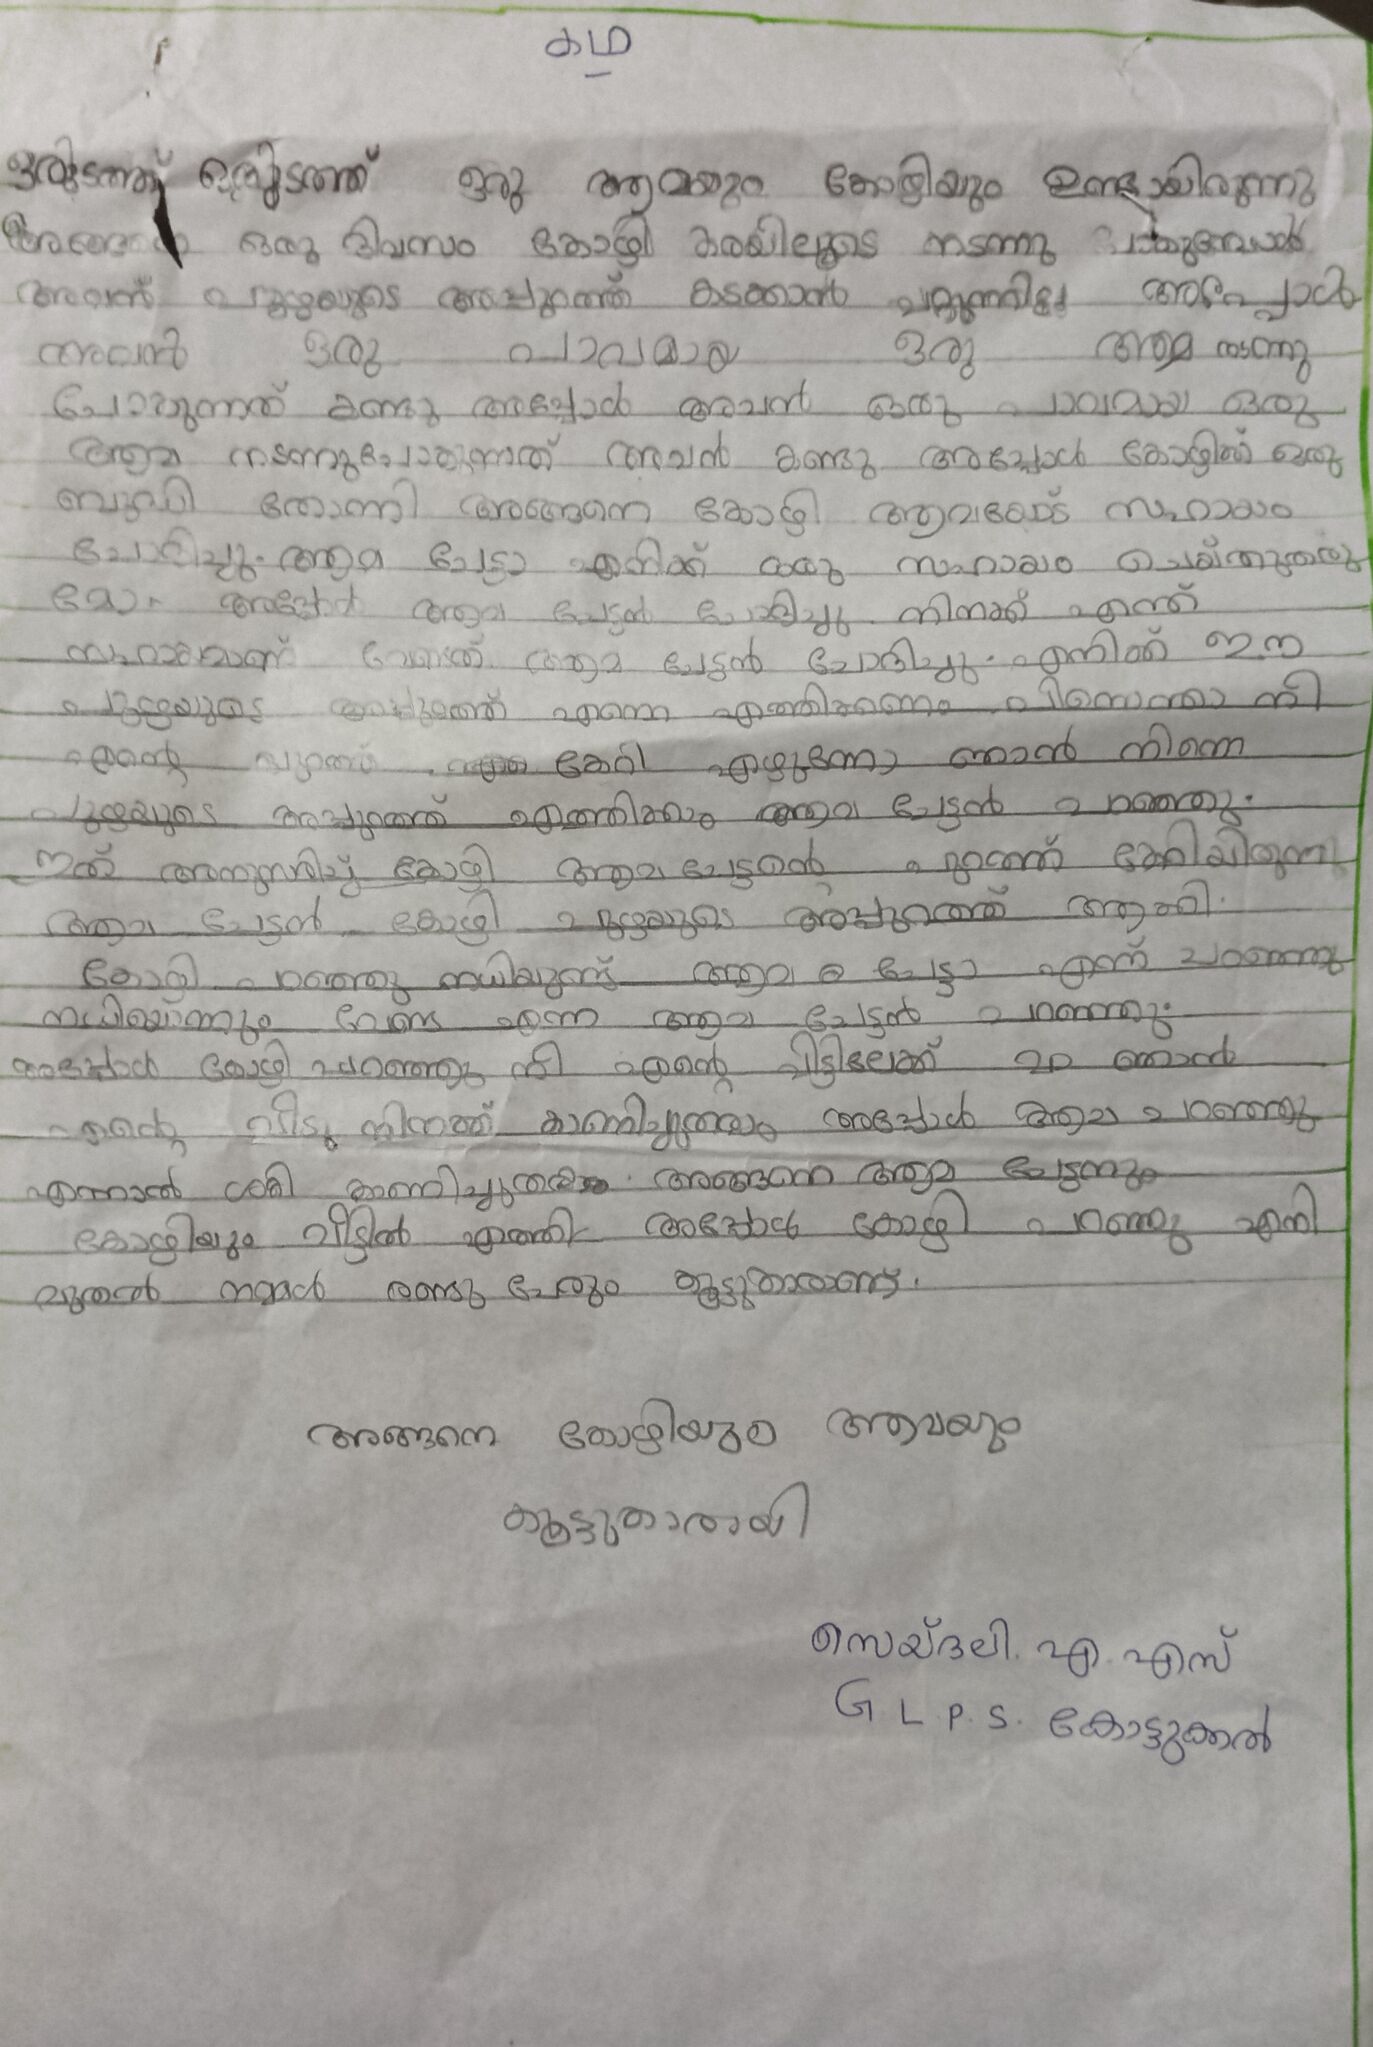 കഥ
ഒരിടത്ത് ഒരിടത്ത് ഒരു ആമയും കോഴിയും ഉണ്ടായിരുന്നു
അങ്ങനെ ഒരു ദിവസം കോഴി കരയിലൂടെ നടന്നു പോകുമ്പോൾ
അവന് പുഴയുടെ അപ്പുറത്ത് കടക്കാൻ പറ്റുന്നില്ല അപ്പോൾ
അവൻ ഒരു പാവമായ ഒരു ആമ നടന്നു
പോകുന്നത് കണ്ടു അപ്പോൾ അവൻ ഒരു പാവമായ ഒരു
ആമ നടന്നുപോകുന്നത് അവൻ കണ്ടു അപ്പോൾ കോഴിക്ക് ഒരു
ബുദ്ധി തോന്നി അങ്ങനെ കോഴി ആമയോട് സഹായം
ചോദിച്ചു. ആമ ചേട്ടാ എനിക്ക് ഒരു സഹായം ചെയ്തുതരു
മോ. അപ്പോൾ ആമ ചേട്ടൻ ചോദിച്ചു. നിനക്ക് എന്ത്
സഹായമാണ് വേണ്ടത്. ആമ ചേട്ടൻ ചോദിച്ചു. എനിക്ക് ഈ
പുഴയുടെ അപ്പുറത്ത് എന്നെ എത്തിക്കണം പിന്നെന്താ നീ
എന്റെ പുറത്ത് കേറി ഞാൻ നിന്നെ
പുഴയുടെ അപ്പുറത്ത് എത്തിക്കും ആമ ചേട്ടൻ പറഞ്ഞു.
ഇത് അനുസരിച്ച് കോഴി ആമ ചേട്ടന്റെ പുറത്ത് കേറിയിരുന്നു
ആമ ചേട്ടൻ കോഴി പുഴയുടെ അപ്പുറത്ത് ആക്കി.
കോഴി പറഞ്ഞു നന്ദിയുണ്ട് ആമ ചേട്ടാ എന്ന് പറഞ്ഞു
നന്ദിയൊന്നും വേണ്ട എന്ന ആമ ചേട്ടൻ പറഞ്ഞു.
അപ്പോൾ കോഴി പറഞ്ഞു നീ എന്റെ വീട്ടിലേക്ക് വാ ഞാൻ
എന്റെ വീടു നിനക്ക് കാണിച്ചുതരാം അപ്പോൾ ആമ പറഞ്ഞു
എന്നാൽ ശരി കാണിച്ചുതരു. അങ്ങനെ ആമ ചേട്ടനും
കോഴിയും വീട്ടിൽ എത്തി അപ്പോൾ കോഴി പറഞ്ഞു എനി
മുതൽ നമ്മൾ രണ്ടു പേരും കൂട്ടുകാരാണ്.
അങ്ങനെ കോഴിയും ആമയും
കൂട്ടുകാരായി
സെയ്ദലി. എ. എസ്
G. L. P. S. കോട്ടുക്കൽ